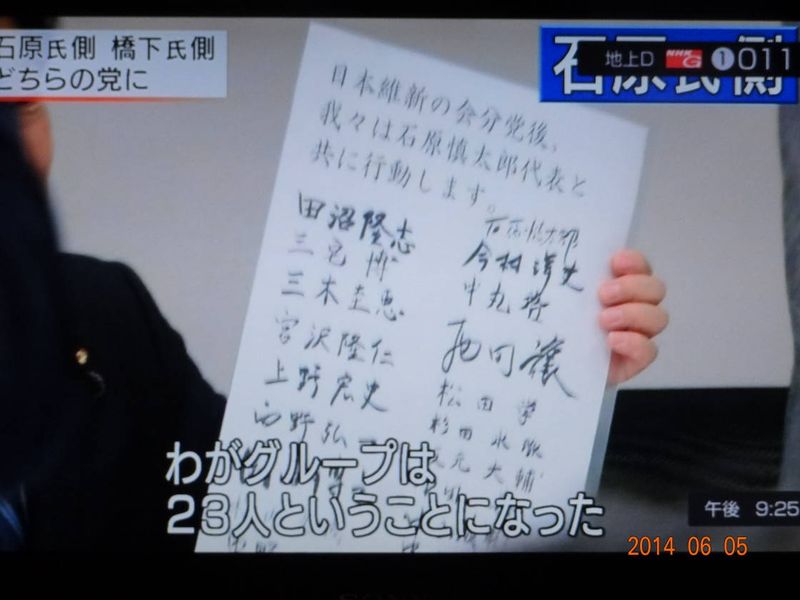 石原氏側 橋下氏側
どちらの党に
石原氏側
地上D NHK G 1 011
日本維新の会分党後、
我々は石原慎太郎代表と
共に行動します。
石原慎太郎
田沼隆志
今村洋史
三宅博
中丸啓
三木圭恵
宮沢隆仁
上野宏史
松田学
西野弘一
杉田水脈
わがグループは
23人ということになった
午後 9:25
2014 06 05